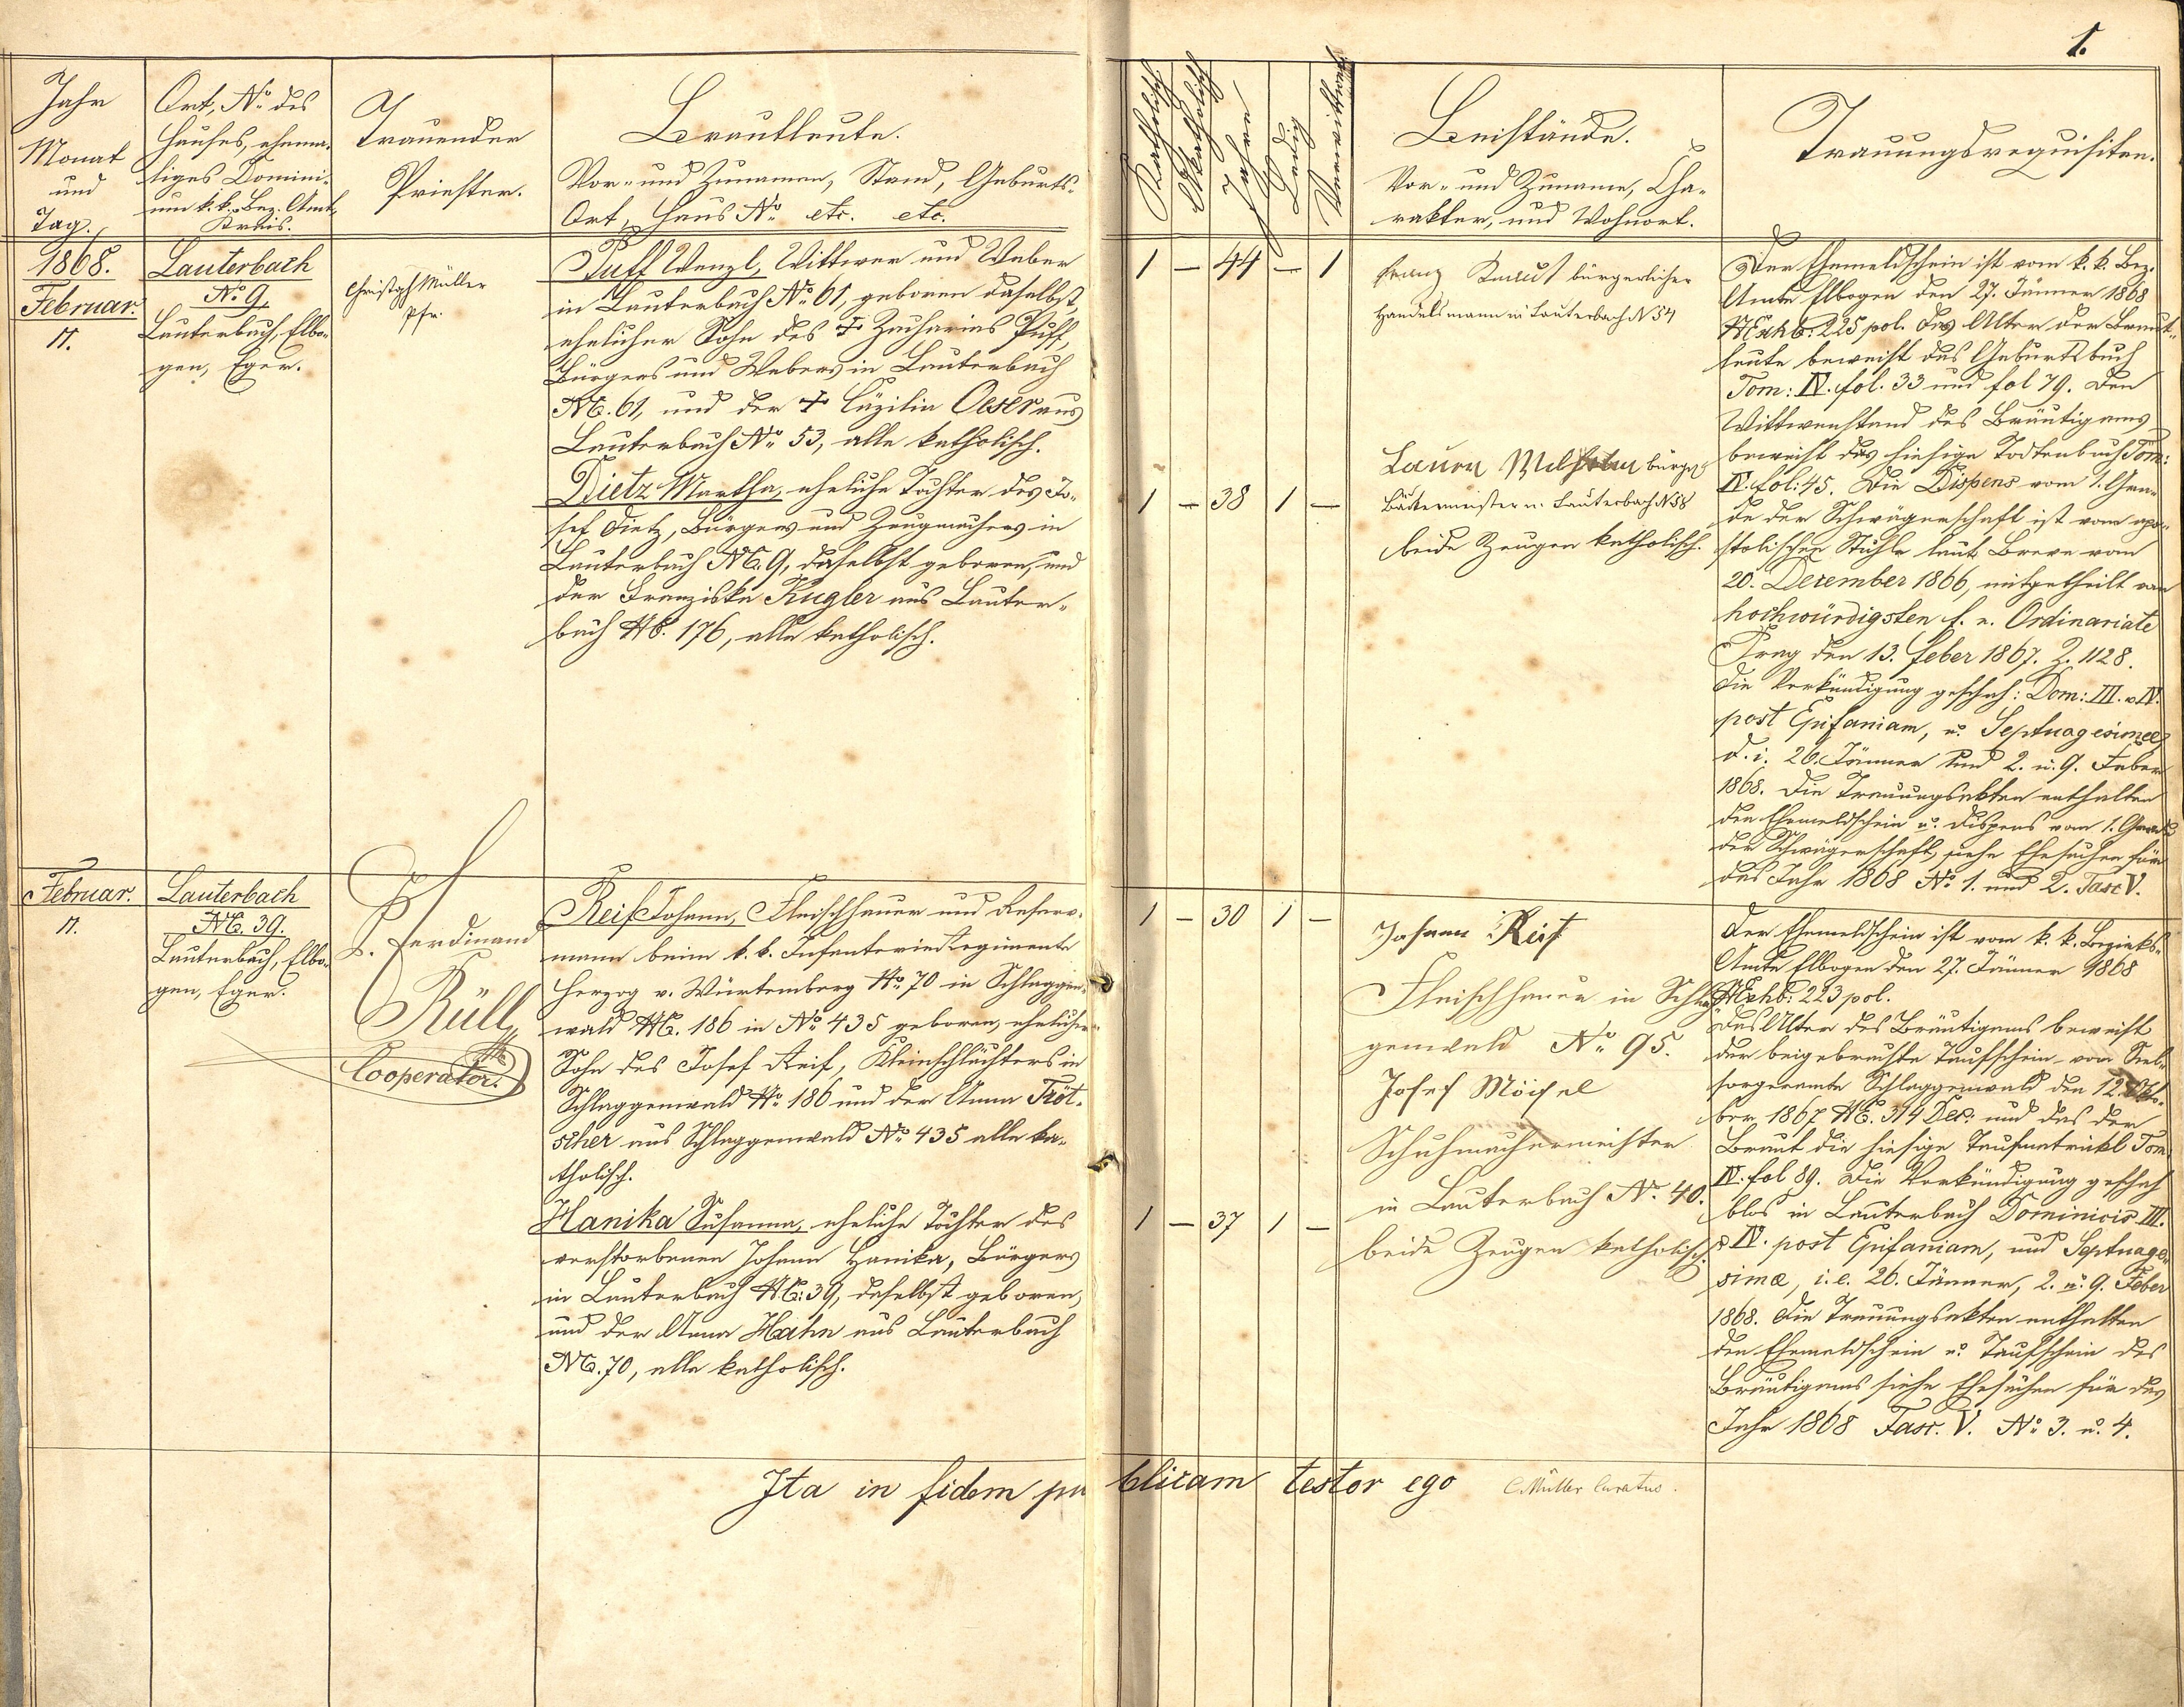 1.
Jahr
Monat
und
Tag.
Ort, No des
Hauses, ehema-
liges Domini-
um k. k. Bez. Amt,
Kreis.
Trauender
Priester.
Brautleute.
Vor- und Zunamen, Stand, Geburts-
Ort, Haus No etc. etc.
Katholisch
Akatholisch
Jahre
Ledig
Verwittwet
Beistände.
Vor- und Zuname, Cha-
rakter, und Wohnort.
Trauungsrequisiten.
1868.
Februar.
11.
Lauterbach
No 9,
Lauterbach, Elbo-
gen, Eger.
Christoph Müller
Pfr.
Puff Wenzl, Wittwer und Weber
in Lauterbach No 61, geboren daselbst,
ehelicher Sohn des † Zacharias Puff,
Bürgers und Webers in Lauterbach
NC. 61, und der † Cäzilia Oeser aus
Lauterbach No 53, alle katholisch.
Dietz Martha, eheliche Tochter des Jo-
sef Dietz, Bürgers und Zeugmachers in
Lauterbach NC. 9, daselbst geboren, und
der Franziska Kugler aus Lauter-
bach NC. 176, alle katholisch.
1 — 44 — 1
1 — 38 1 —
Franz bürgerlicher
Handelsmann in Lauterbach N 54
bürgl
Bäckermeister in Lauterbach N 58
beide Zeugen katholisch.
Der Ehemeldschein ist vom k. k. Bez.
Amte Elbogen den 27. Jänner 1868
NExhb: 225 pol. Das Alter der Braut-
leute beweist das Geburtsbuch
Tom: IV. fol. 33 und fol 79. Den
Wittwenstand des Bräutigams
beweist das hiesige Todtenbuch Tom:
IV. fol: 45. Die Dispens vom 1. Gra-
de der Schwägerschaft ist vom apo-
stolischen Stuhle laut Breve vom
20. Dezember 1866, mitgetheilt vom
hochwürdigsten f. e. Ordinariate
Prag den 13. Feber 1867. Z. 1128.
Die Verkündigung geschah: Dom: III. u IV.
post Epifaniam, u. Septuagesimae
d. i. 26. Jänner und 2. u. 9. Feber
1868. Die Trauungsakten enthalten
den Ehemeldschein u. Dispens vom 1. Grade
der Schwägerschaft, siehe Ehesachen für
das Jahr 1868 No 1. und 2. Fasc V.
Februar.
11.
Lauterbach
NC. 39.
Lauterbach, Elbo-
gen, Eger.
P. Ferdinand
Rüll,
Cooperator.
Reif Johann, Fleischhauer und Reserv-
mann beim k. k. Infanterie Regimente
Herzog v. Würtemberg No 70 in Schlaggen-
wald NC. 186 in No 435 geboren, ehelicher
Sohn des Josef Reif, Kleinschlächters in
Schlaggenwald No 186 und der Anna Tröt-
scher aus Schlaggenwald No 435 alle ka-
tholisch.
Hanika Susanna, eheliche Tochter des
verstorbenen Johann Hanika, Bürgers
in Lauterbach NC: 39, daselbst geboren,
und der Anna Hahn aus Lauterbach
NC. 70, alle katholisch.
1 — 30 1 —
1 — 37 1 —
Johann Reif
Fleischhauer in Schlag-
genwald No 95.
Josef Möisel
Schuhmachermeister
in Lauterbach No 40.
beide Zeugen katholisch.
Der Ehemeldschein ist vom k. k. Bezirks-
Amte Elbogen den 27. Jänner 1868
NExhb: 223 pol.
Das Alter des Bräutigams beweist
der beigebrachte Taufschein vom Seel-
sorgeramte Schlaggenwald den 12. Okto-
ber 1867 NE. 314 Dec. und das der
Braut die hiesige Taufmatrikl Tom
IV. fol 89. Die Verkündigung geschah
blos in Lauterbach Dominicis III.
u IV. post Epifaniam, und Septuage-
sima, i. e. 26. Jänner, 2. u. 9. Feber
1868. Die Trauungsakten enthalten
den Ehemeldschein u. Taufschein des
Bräutigams siehe Ehesachen für das
Jahr 1868 Fasc. V. No 3. u. 4.
Ita in fidem publicam testor ego C. Müller Curatus.